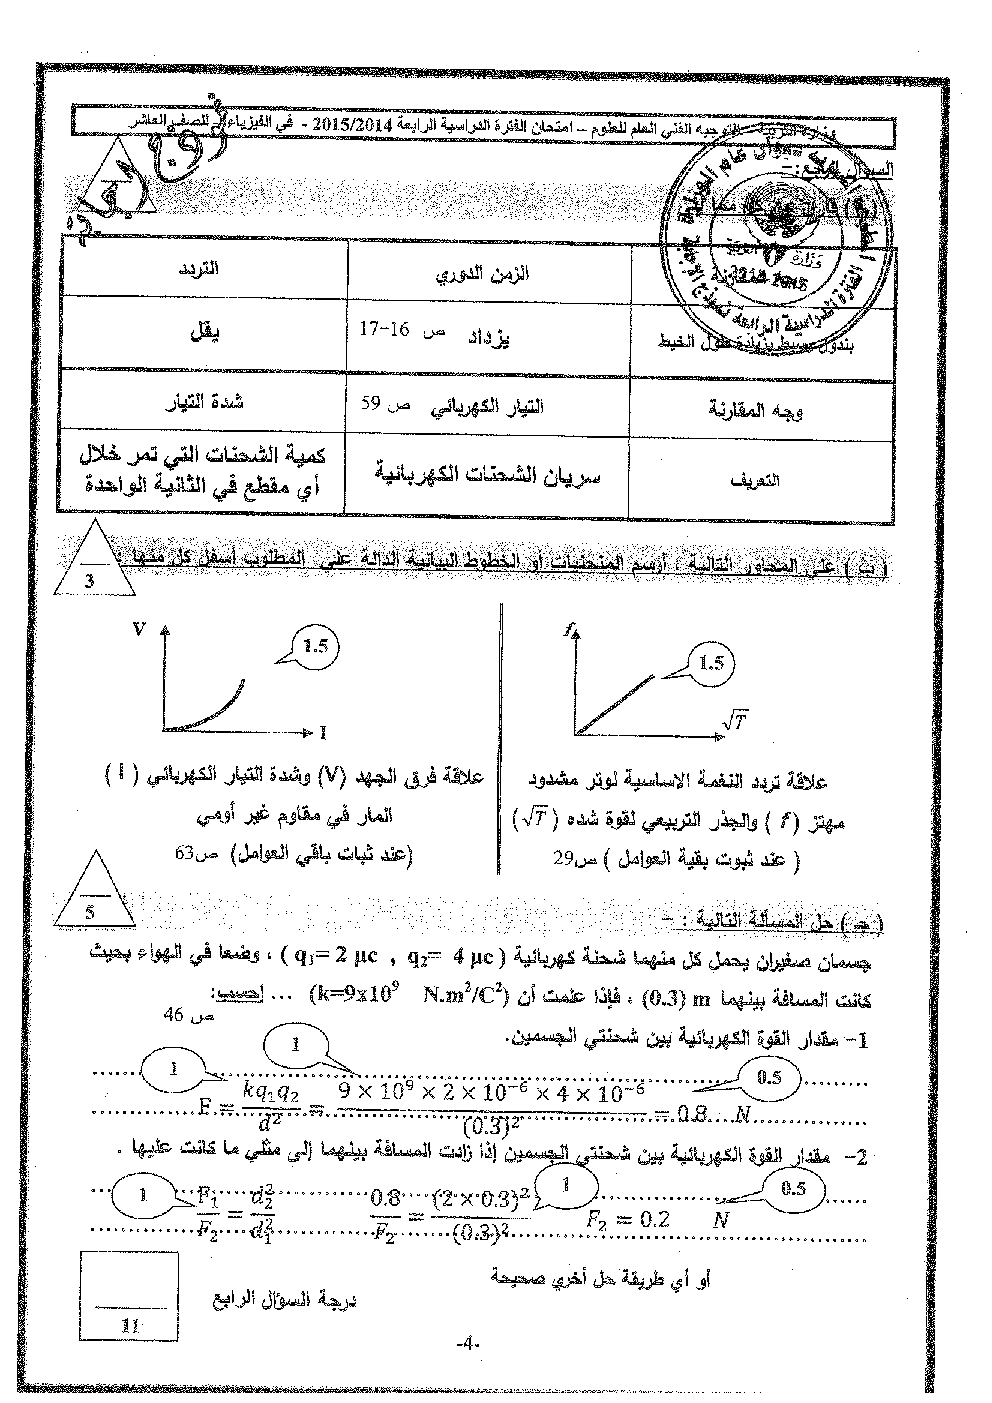 وزارة التربية – التوجيه الفني العام للعلوم – امتحان الفترة الدراسية الرابعة 2015/2014 - في الفيزياء للصف العاشر
نموذج إجابة
السؤال الرابع:-
التردد
الزمن الدوري
يقل
يزداد ص 16-17
بندول بسيط بزيادة طول الخيط
شدة التيار
التيار الكهربائي ص 59
وجه المقارنة
كمية الشحنات التي تمر خلال أي مقطع في الثانية الواحدة
سريان الشحنات الكهربائية
التعريف
3
( ب ) على المحاور التالية ، أرسم المنحنيات أو الخطوط البيانية الدالة على المطلوب أسفل كل منها :
f
1.5
√T
علاقة تردد النغمة الاساسية لوتر مشدود
مهتز ( f ) والجذر التربيعي لقوة شده ( √T )
( عند ثبوت بقية العوامل ) ص29
V
1.5
I
علاقة فرق الجهد (V) وشدة التيار الكهربائي ( I )
المار في مقاوم غير أومي
(عند ثبات باقي العوامل) ص63
5
( جـ ) حل المسألة التالية : -
جسمان صغيران يحمل كل منهما شحنة كهربائية ( q₁= 2 µc , q₂= 4 µc ) ، وضعا في الهواء بحيث
كانت المسافة بينهما m (0.3) ، فإذا علمت أن (k=9x10⁹ N.m²/C²) ... إحسب:
ص 46
1- مقدار القوة الكهربائية بين شحنتي الجسمين.
1 1 0.5
F = kq₁q₂ / d² = 9 × 10⁹ × 2 × 10⁻⁶ × 4 × 10⁻⁶ / (0.3)² = 0.8 N
2- مقدار القوة الكهربائية بين شحنتي الجسمين إذا زادت المسافة بينهما إلى مثلي ما كانت عليها .
1 1 0.5
F₁ / F₂ = d₂² / d₁² 0.8 / F₂ = (2 × 0.3)² / (0.3)² F₂ = 0.2 N
أو أي طريقة حل أخري صحيحة
درجة السؤال الرابع
11
-4-